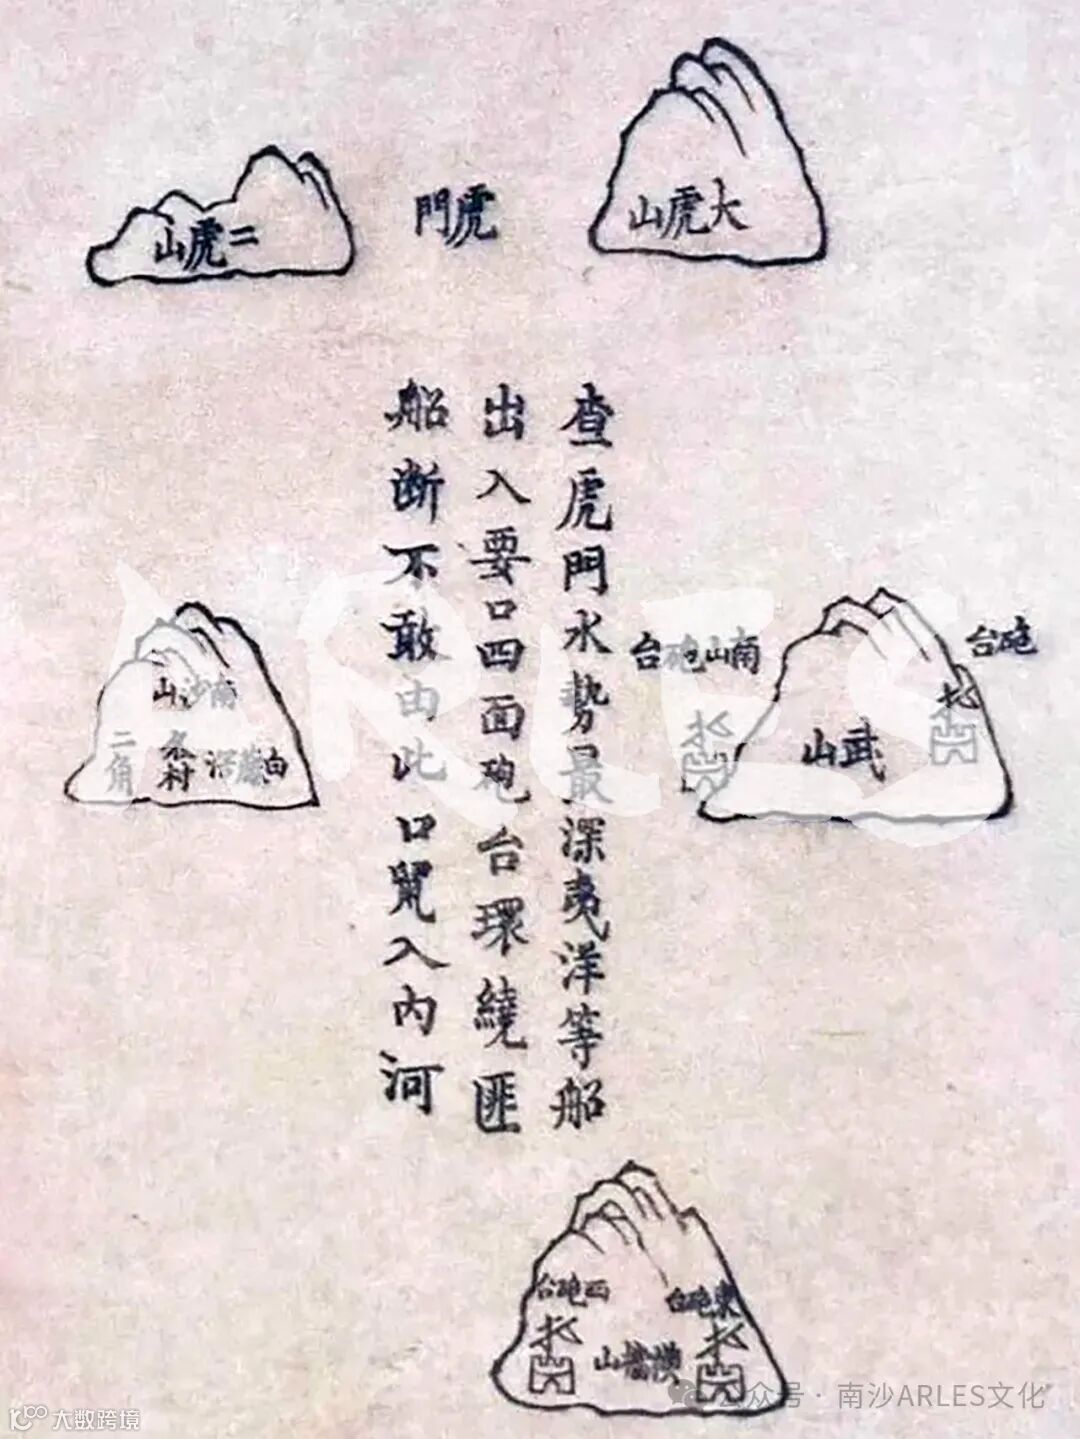 大虎山
虎門
二虎山
查虎門水勢最深夷洋等船
出入要口四面砲台環繞匪
船断不敢由此口入內河
砲台
南山砲台
武山
南沙山
白藤滘
村
二角
東砲台
西砲台
横檔山
ARLES
公众号 · 南沙ARLES文化
大数跨境